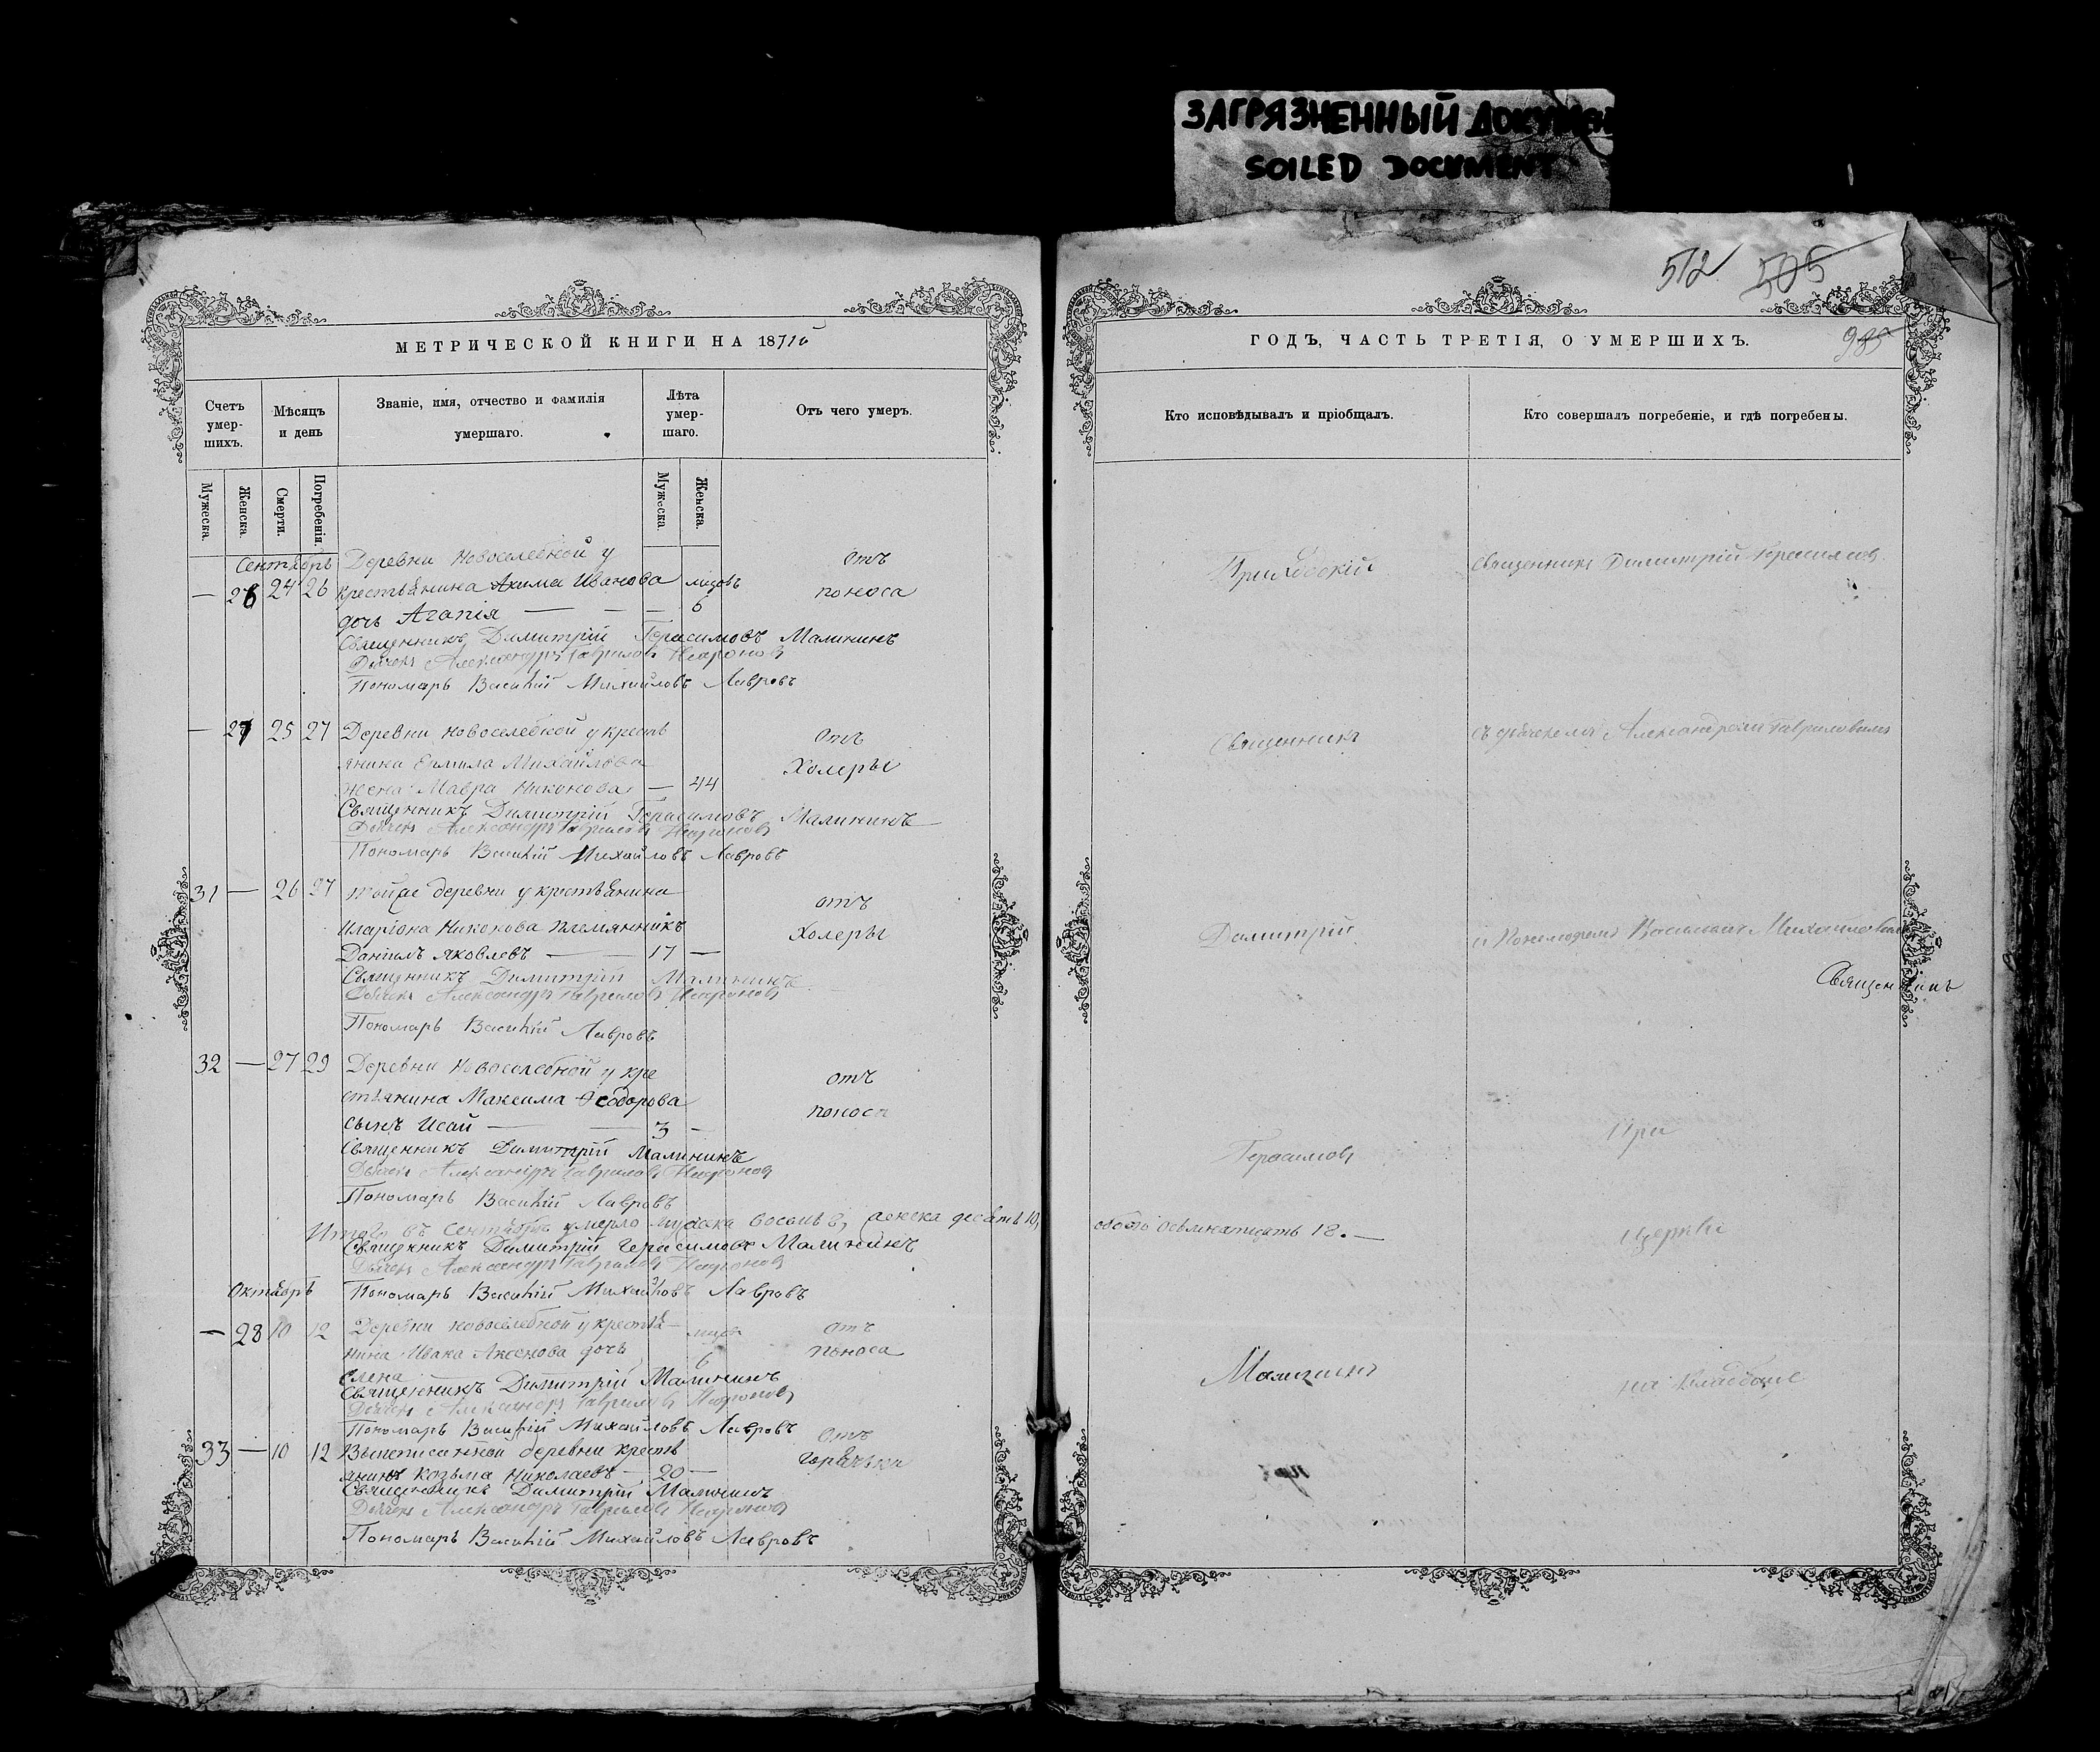 ЗАГРЯЗНЕННЫЙ ДОКУМЕН
SOILED DOCUMENT
512 505
МЕТРИЧЕСКОЙ КНИГИ НА 1871й
Счетъ умер-шихъ.
Мѣсяцъ и день
Званіе, имя, отчество и фамилія умершаго.
Лѣта умер-шаго.
Отъ чего умеръ.
Мужеска. Женска. Смерти. Погребенія. Мужеска. Женска.
Сентябрь Деревни Новоселебной у отъ
— 26 24 26 крестьянина Акима Иванова мцовъ поноса
дочь Агапія — — — 6
Священникъ Димитрій Герасимовъ Малининъ
Дьячекъ Александръ Гавриловъ
Пономарь Василій Михайловъ Лавровъ
— 27 25 27 Деревни Новоселебной у кресть отъ
янина Ермила Михайлова Холеры
жена Мавра Никонова — 44
Священникъ Димитрій Герасимовъ Малининъ
Дьячекъ Александръ Гавриловъ
Пономарь Василій Михайловъ Лавровъ
31 — 26 27 Тойже деревни у крестьянина отъ
Иларіона Никонова племянникъ Холеры
Даніилъ Яковлевъ — — 17 —
Священникъ Димитрій Малининъ
Дьячекъ Александръ Гавриловъ
Пономарь Василій Лавровъ
32 — 27 29 Деревни Новоселебной у кре отъ
стьянина Максима Ѳеодорова поноса
сынъ Исай — — 3 —
Священникъ Димитрій Малининъ
Дьячекъ Александръ Гавриловъ
Пономарь Василій Лавровъ
Итого въ Сентябрѣ умерло мужеска восемь 8, женска десять 10,
Священникъ Димитрій Герасимовъ Малининъ
Дьячекъ Александръ Гавриловъ
Октябрь Пономарь Василій Михайловъ Лавровъ
— 28 10 12 Деревни Новоселебной у крестья— мцовъ отъ
нина Ивана Аксенова дочь 6 поноса
Елена
Священникъ Димитрій Малининъ
Дьячекъ Александръ Гавриловъ
Пономарь Василій Михайловъ Лавровъ отъ
33 — 10 12 Вышеписанной деревни кресть горячьки
янинъ Козьма Николаевъ — 20 —
Священникъ Димитрій Малининъ
Дьячекъ Александръ Гавриловъ
Пономарь Василій Михайловъ Лавровъ
ГОДЪ, ЧАСТЬ ТРЕТІЯ, О УМЕРШИХЪ.
985
Кто исповѣдывалъ и пріобщалъ.
Кто совершалъ погребеніе, и гдѣ погребены.
Приходскій Священникъ Димитрій Герасимовъ
Священникъ съ дьячекомъ Александромъ Гавриловымъ
Димитрій и Пономаремъ Василіемъ Михайловымъ
Священникъ
При
Герасимовъ
обоего осьмнатцать 18. — церкви
Малининъ на кладбище